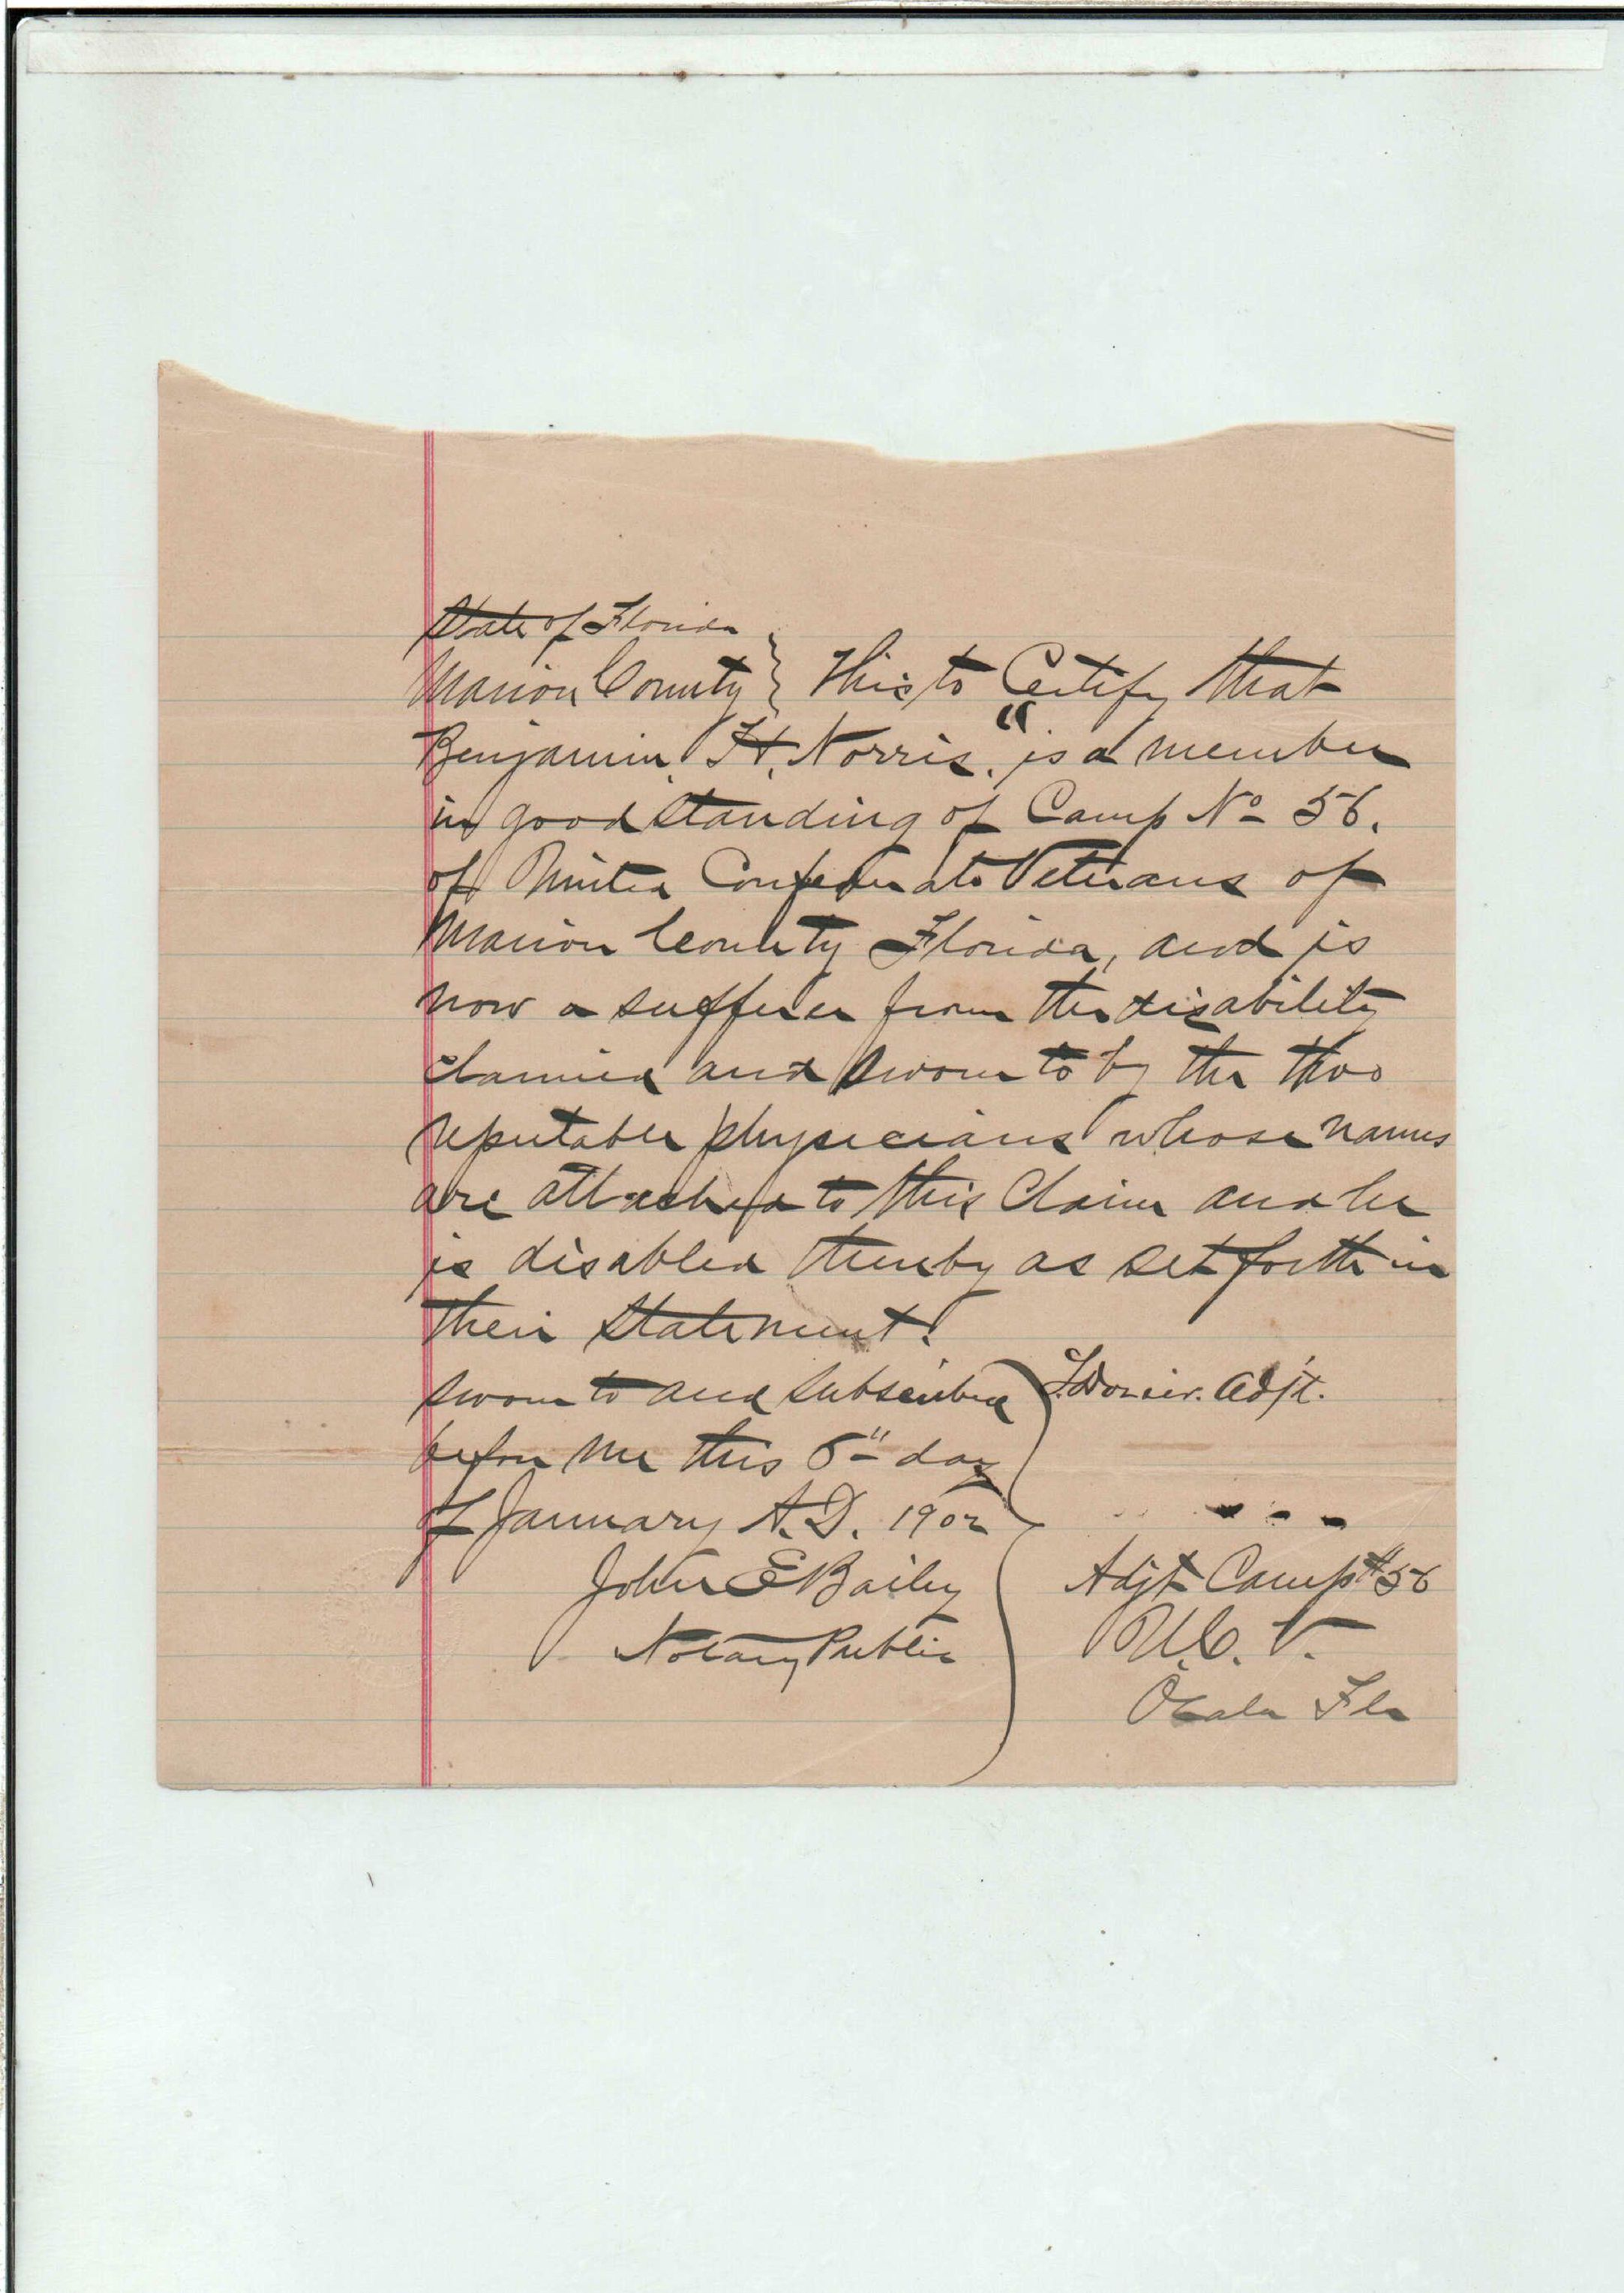 State of Florida
Marion County } This to Certify that
Benjamin. H. Norris. "is a member
in good standing of Camp No 56.
of United Confederate Veterans of
Marion County Florida, and is
now a sufferer from the disability
claimed and sworn to by the two
reputable physicians whose names
are attached to this Claim and he
is disabled thereby as set forth in
their statement.
Sworn to and subscribed
before me this 6" day
of January A.D. 1902
John E Bailey
Notary Public
Adjt.
Adjt Camp #56
U.C.V.
Ocala Fla